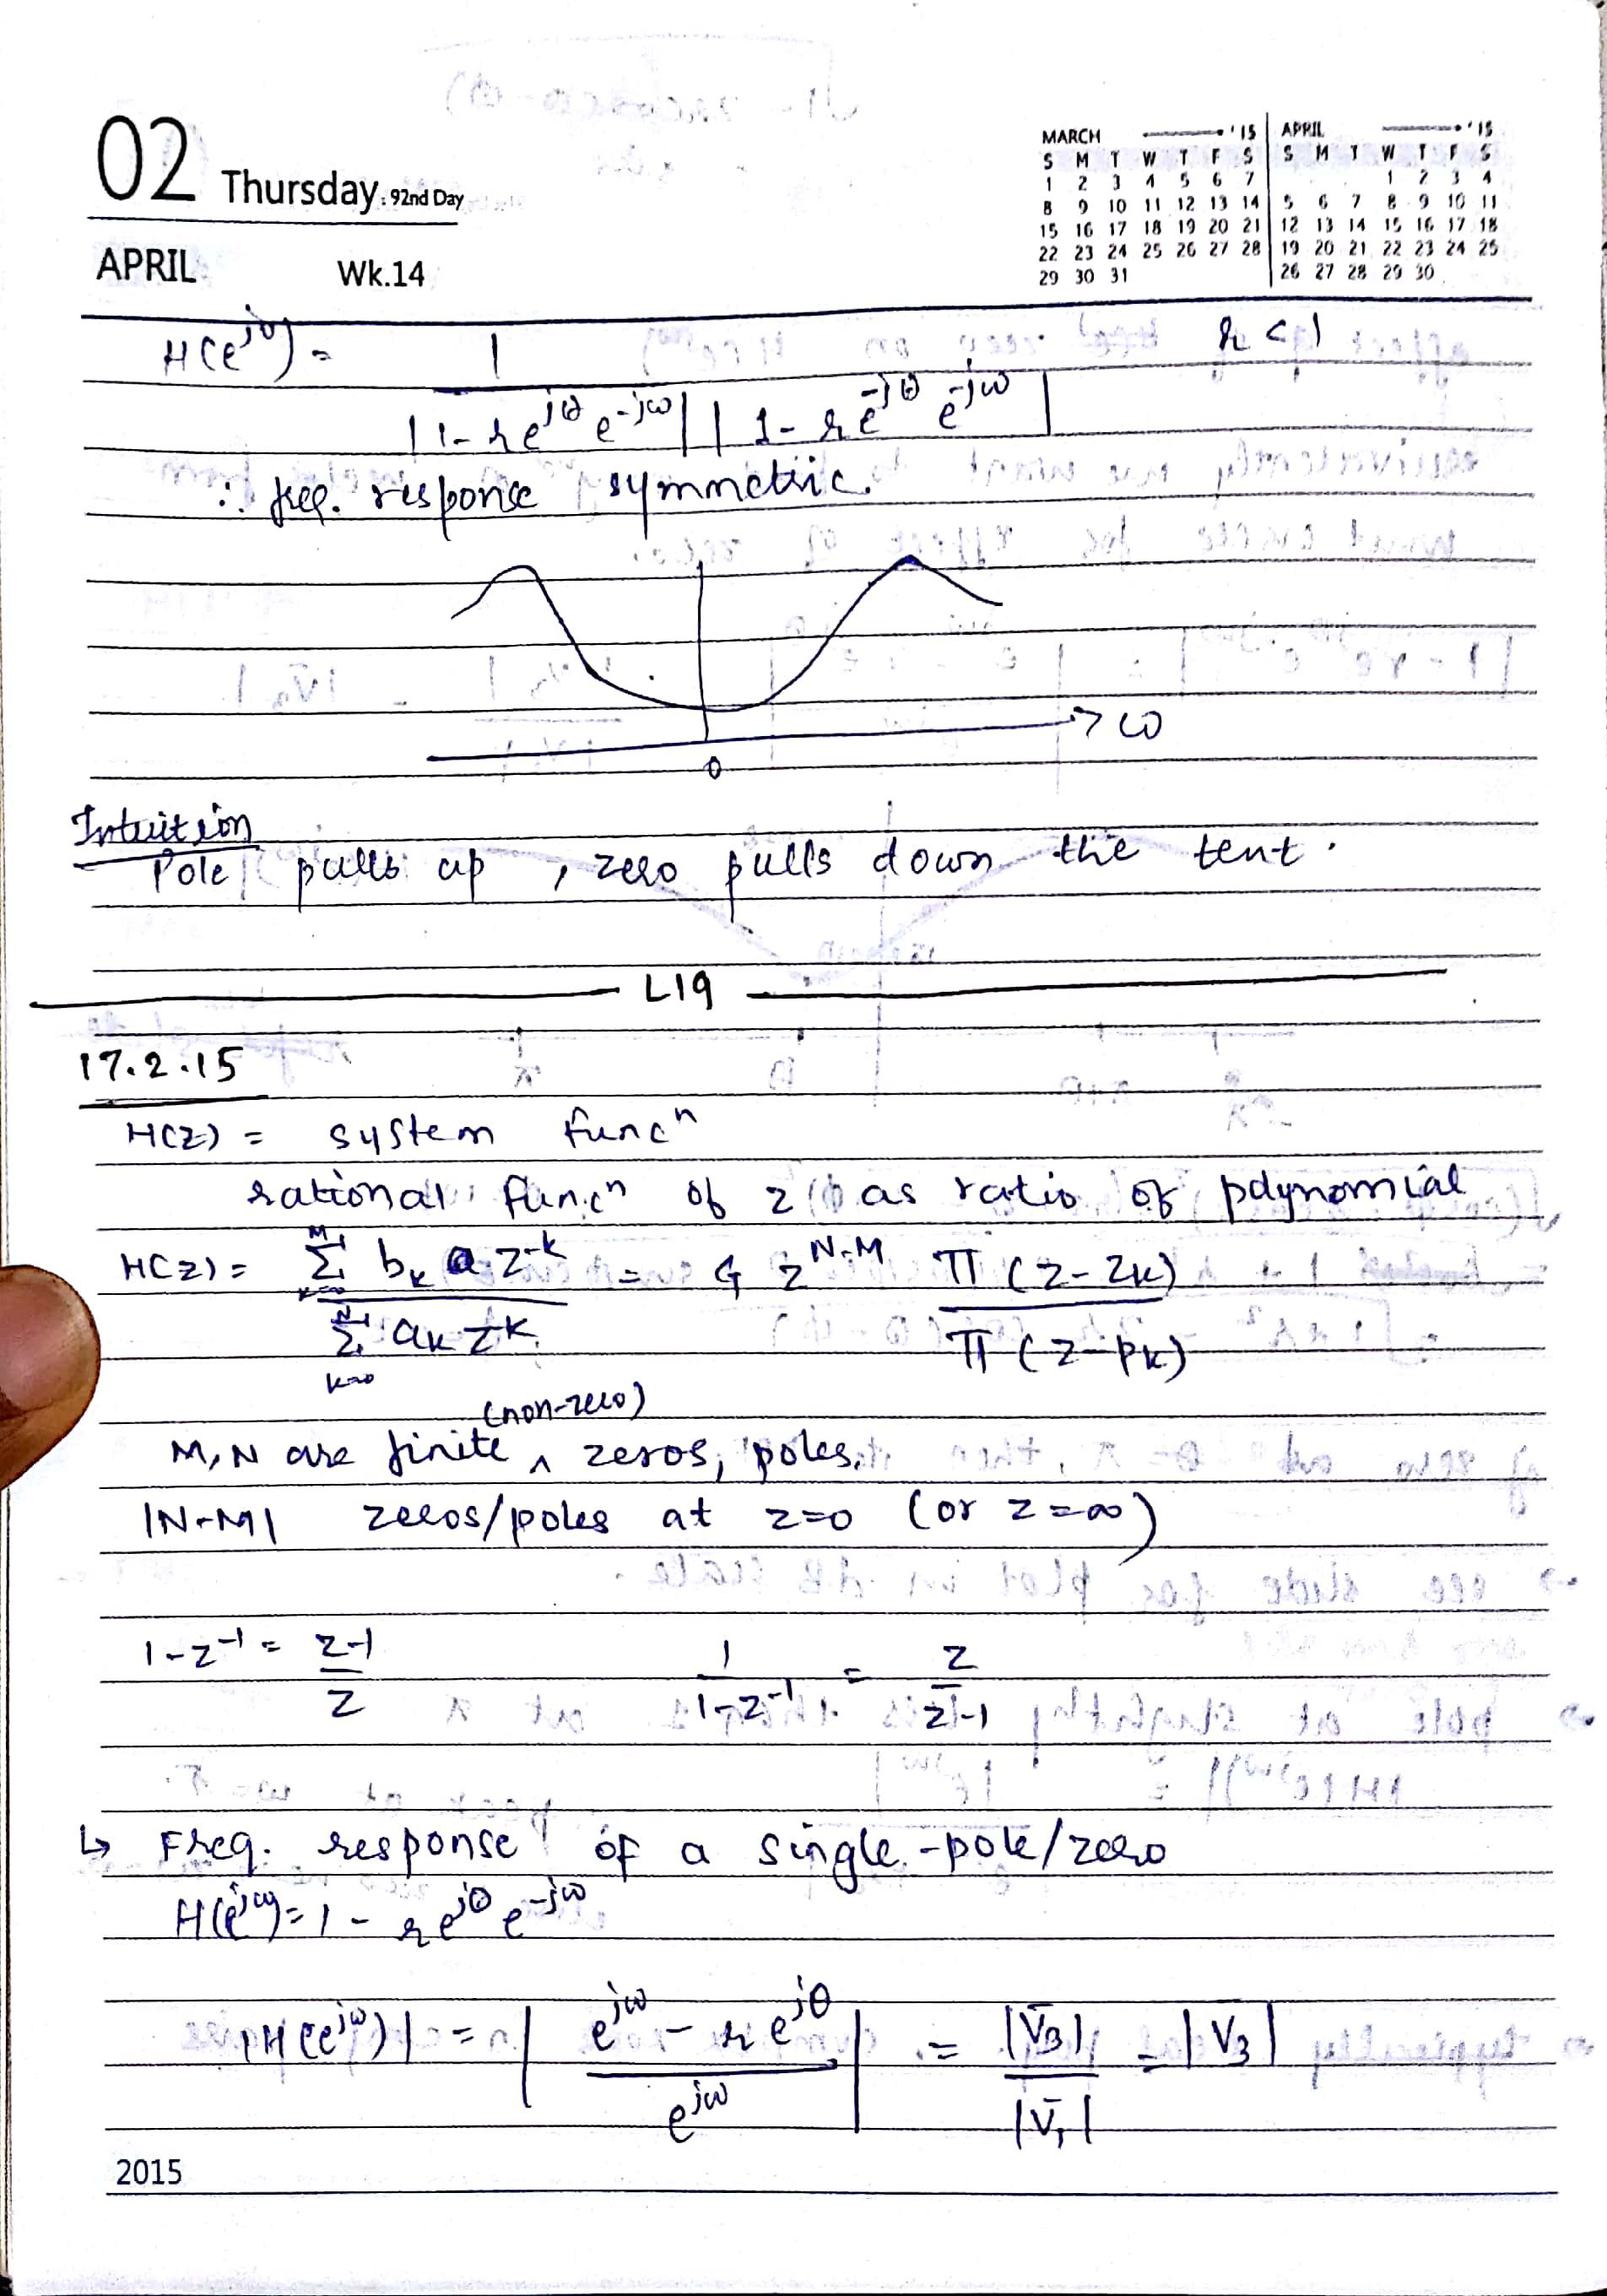 02 Thursday : 92nd Day
APRIL Wk.14
MARCH '15
S M T W T F S
1 2 3 4 5 6 7
8 9 10 11 12 13 14
15 16 17 18 19 20 21
22 23 24 25 26 27 28
29 30 31
APRIL '15
S M T W T F S
1 2 3 4
5 6 7 8 9 10 11
12 13 14 15 16 17 18
19 20 21 22 23 24 25
26 27 28 29 30
H(e^{jω}) = 1 / |1 - re^{jθ} e^{-jω}| |1 - re^{-jθ} e^{-jω}| r < 1
∴ freq. response symmetric.
0 → ω
Intuition
Pole pulls up, zero pulls down the tent.
L19
17.2.15
H(z) = system funcⁿ
rational funcⁿ of z as ratio of polynomial
H(z) = Σ_{k=0}^{M} b_k z^{-k} / Σ_{k=0}^{N} a_k z^{-k} = G z^{N-M} Π (z - z_k) / Π (z - p_k)
(non-zero)
M, N are finite ^ zeros, poles.
|N-M| zeros/poles at z=0 (or z=∞)
1 - z^{-1} = z-1 / z 1 / 1-z^{-1} = z / z-1
↳ Freq. response of a single-pole/zero
H(e^{jω}) = 1 - re^{jθ} e^{-jω}
|H(e^{jω})| = | e^{jω} - re^{jθ} / e^{jω} | = |V̄₃| / |V̄₁| = |V₃|
2015